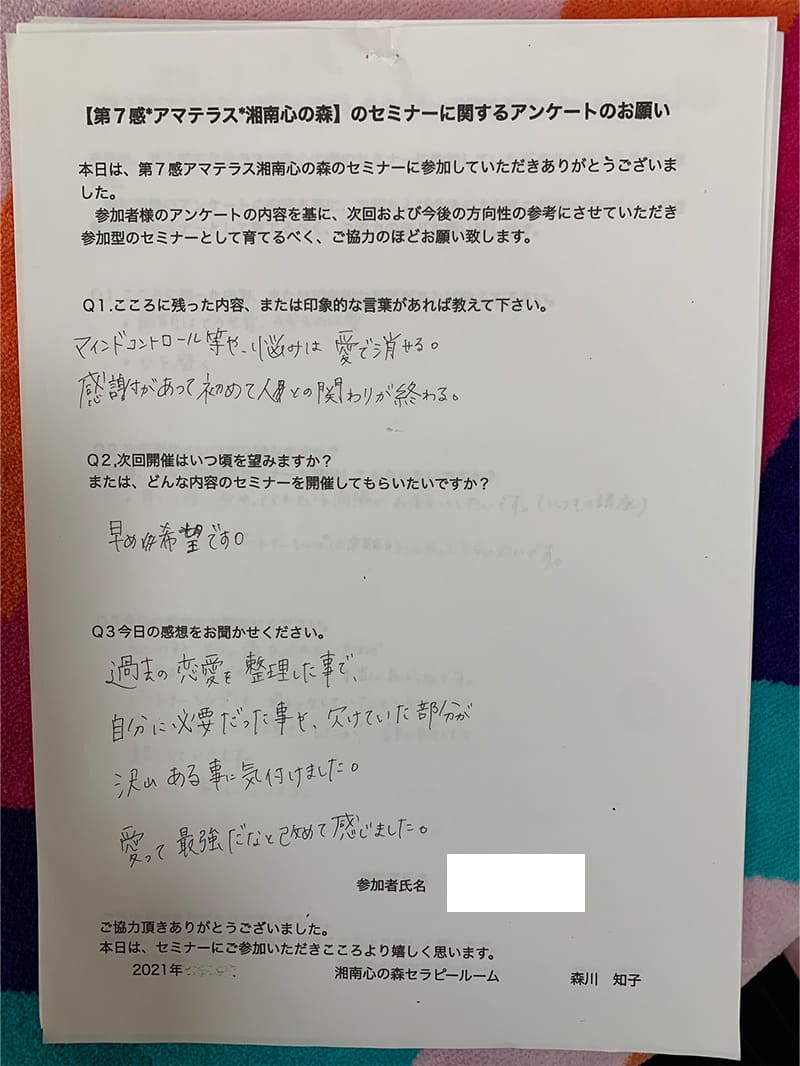 【第７感*アマテラス*湘南心の森】のセミナーに関するアンケートのお願い
本日は、第７感アマテラス湘南心の森のセミナーに参加していただきありがとうございま
した。
参加者様のアンケートの内容を基に、次回および今後の方向性の参考にさせていただき
参加型のセミナーとして育てるべく、ご協力のほどお願い致します。
Ｑ１.こころに残った内容、または印象的な言葉があれば教えて下さい。
マインドコントロール等や、悩みは 愛で消せる。
感謝があって初めて人との関わりが終わる。
Ｑ２,次回開催はいつ頃を望みますか？
または、どんな内容のセミナーを開催してもらいたいですか？
早め希望です。
Ｑ３今日の感想をお聞かせください。
過去の恋愛を整理した事で、
自分に必要だった事を、欠けていた部分が
沢山ある事に気付けました。
愛って最強だなと改めて感じました。
参加者氏名
ご協力頂きありがとうございました。
本日は、セミナーにご参加いただきこころより嬉しく思います。
2021年 湘南心の森セラピールーム 森川 知子